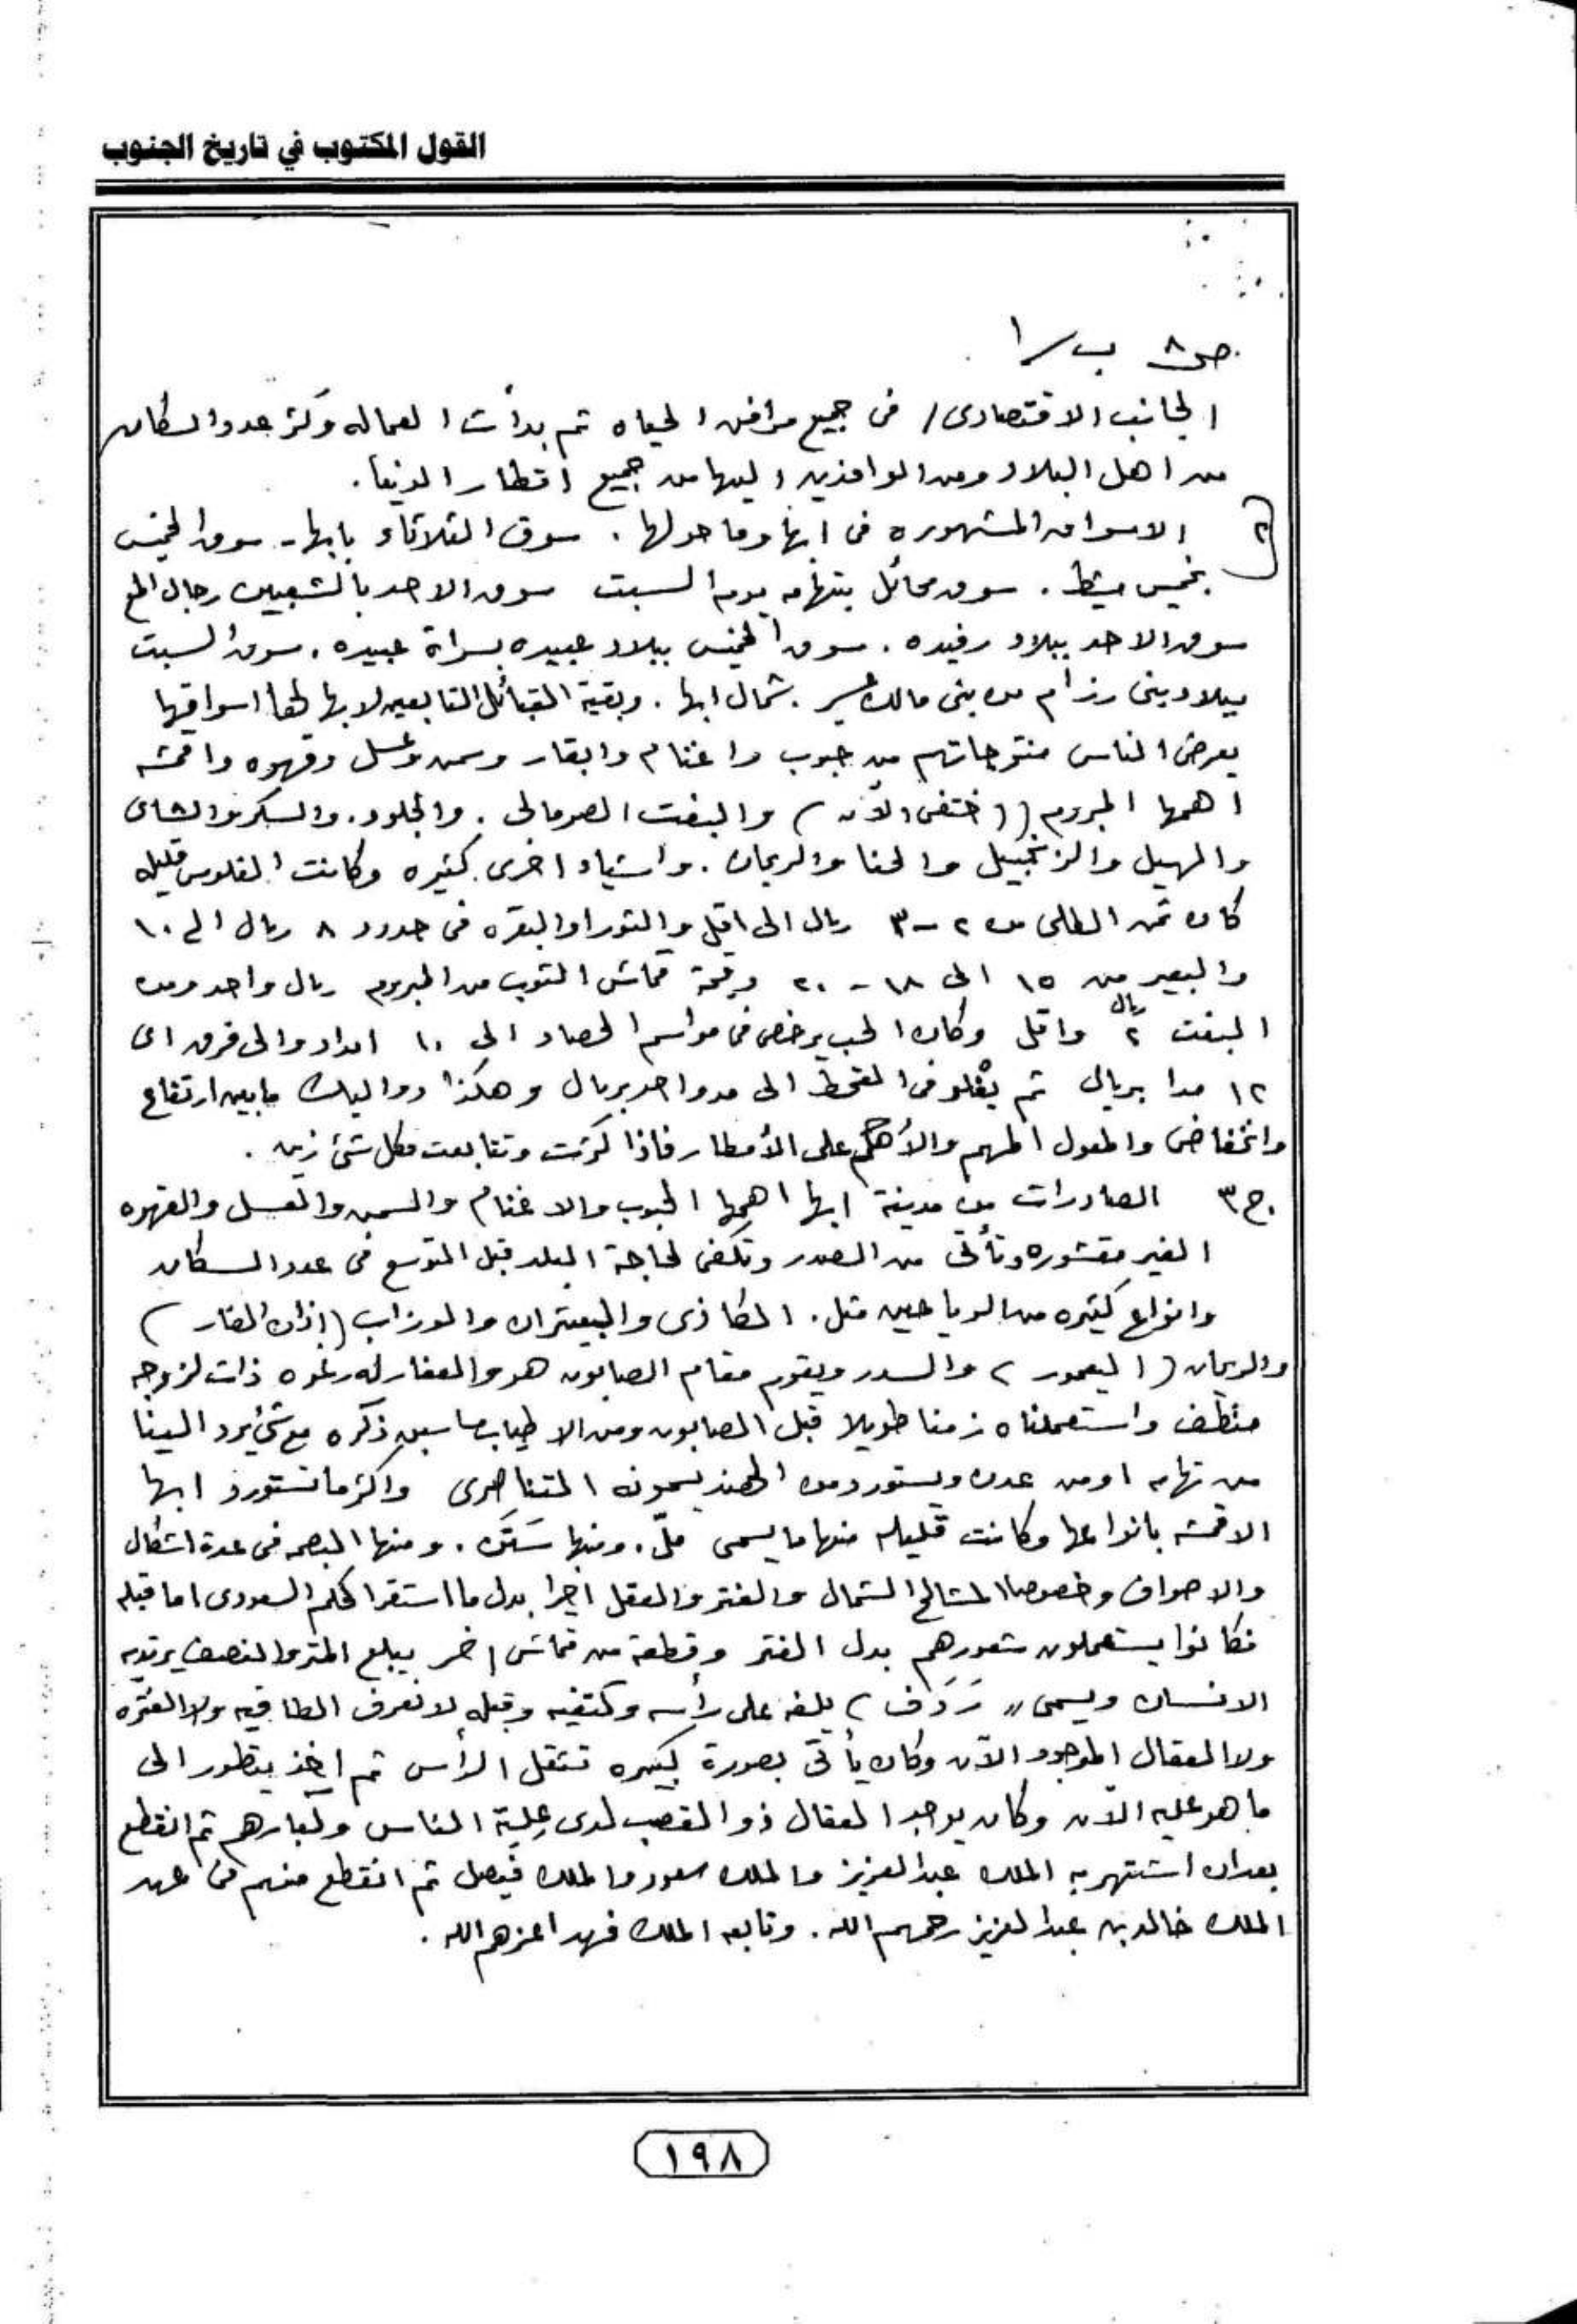 القول المكتوب في تاريخ الجنوب
ص٨ ب/١
الجانب الاقتصادى/ فى جميع مرافق الحياه ثم بدأت العماله وكثر عدد السكان
من اهل البلاد ومن الوافدين اليها من جميع اقطار الدنيا.
ج٢ الاسواق المشهوره فى ابها وما حولها. سوق الثلاثاء بابها - سوق الخميس
بخميس مشيط. سوق محائل بتهامه يوم السبت سوق الاحد بالشعبين رجال المع
سوق الاحد ببلاد رفيده. سوق الخميس ببلاد عبيده بسراة عبيده. سوق السبت
ببلاد بنى رزام من بنى مالك عسير. شمال ابها. وبقية القبائل التابعين لابها لها اسواقها
يعرض الناس منتوجاتهم من حبوب واغنام وابقار وسمن وعسل وقهوه واقمشه
اهمها المبروم ((اختفى الآن) والبفت الصومالى. والجلود. والسكر والشاى
والهيل والزنجبيل والحنا والريحان. واشياء اخرى كثيره وكانت الفلوس قليله
كان ثمن الطلى من ٢-٣ ريال الى اقل والثور او البقره فى حدود ٨ ريال الى ١٠
والبعير من ١٥ الى ١٨ - ٢٠ وقيمة قماش الثوب من المبروم ريال واحد ومن
البفت ٢ ريال واقل وكان الحب يرخص فى مواسم الحصاد الى ١٠ امداد والى فرق اى
١٢ مدا بريال ثم يغلو فى القحط الى مد واحد بريال وهكذا دواليك ما بين ارتفاع
وانخفاض والمعول المهم والأهم على الأمطار فاذا كثرت وتتابعت فكل شئ زين.
ج٣ الصادرات من مدينة ابها اهمها الحبوب والاغنام والسمن والعسل والقهوه
الغير مقشوره وتأتى من الصدر وتكفى لحاجة البلد قبل التوسع فى عدد السكان
وانواع كثيره من الرياحين مثل. الكاذى والبعيثران والوزاب (اذان الفار)
والريحان (اليعمور) والسدر ويقوم مقام الصابون هو والغفار له رغوه ذات لزوجه
منظف واستعملناه زمنا طويلا قبل الصابون ومن الاطياب ما سبق ذكره مع شئ يرد الينا
من تهامه او من عدن ويستورد من الهند يسمونه التناصرى واكثر ما تستورد ابها
الاقمشه بانواعها وكانت قليله منها ما يسمى ملّ. ومنها سَتكره. ومنها البصمه فى عدة اشكال
والاصواف وخصوصا المشالح الشمال والغتر والعقل اخيرا بدل ما استقر الحكم السعودى اما قبله
فكانوا يستعملون شعورهم بدل الغتر وقطعة من قماش اخر يبلغ المتر والنصف يرتديه
الانسان ويسمى ((رَدَف) يلفه على رأسه وكتفيه وقبله لا نعرف الطاقيه ولا الغتره
ولا العقال الموجود الآن وكان يأتى بصورة كبيره تثقل الرأس ثم اخذ يتطور الى
ما هو عليه الآن وكان يوجد العقال ذو القصب لدى عِليَة الناس وكبارهم ثم انقطع
بعد ان اشتهر به الملك عبدالعزيز والملك سعود والملك فيصل ثم انقطع منهم فى عهد
الملك خالد بن عبدالعزيز رحمهم الله. وتابعه الملك فهد اعزهم الله.
١٩٨